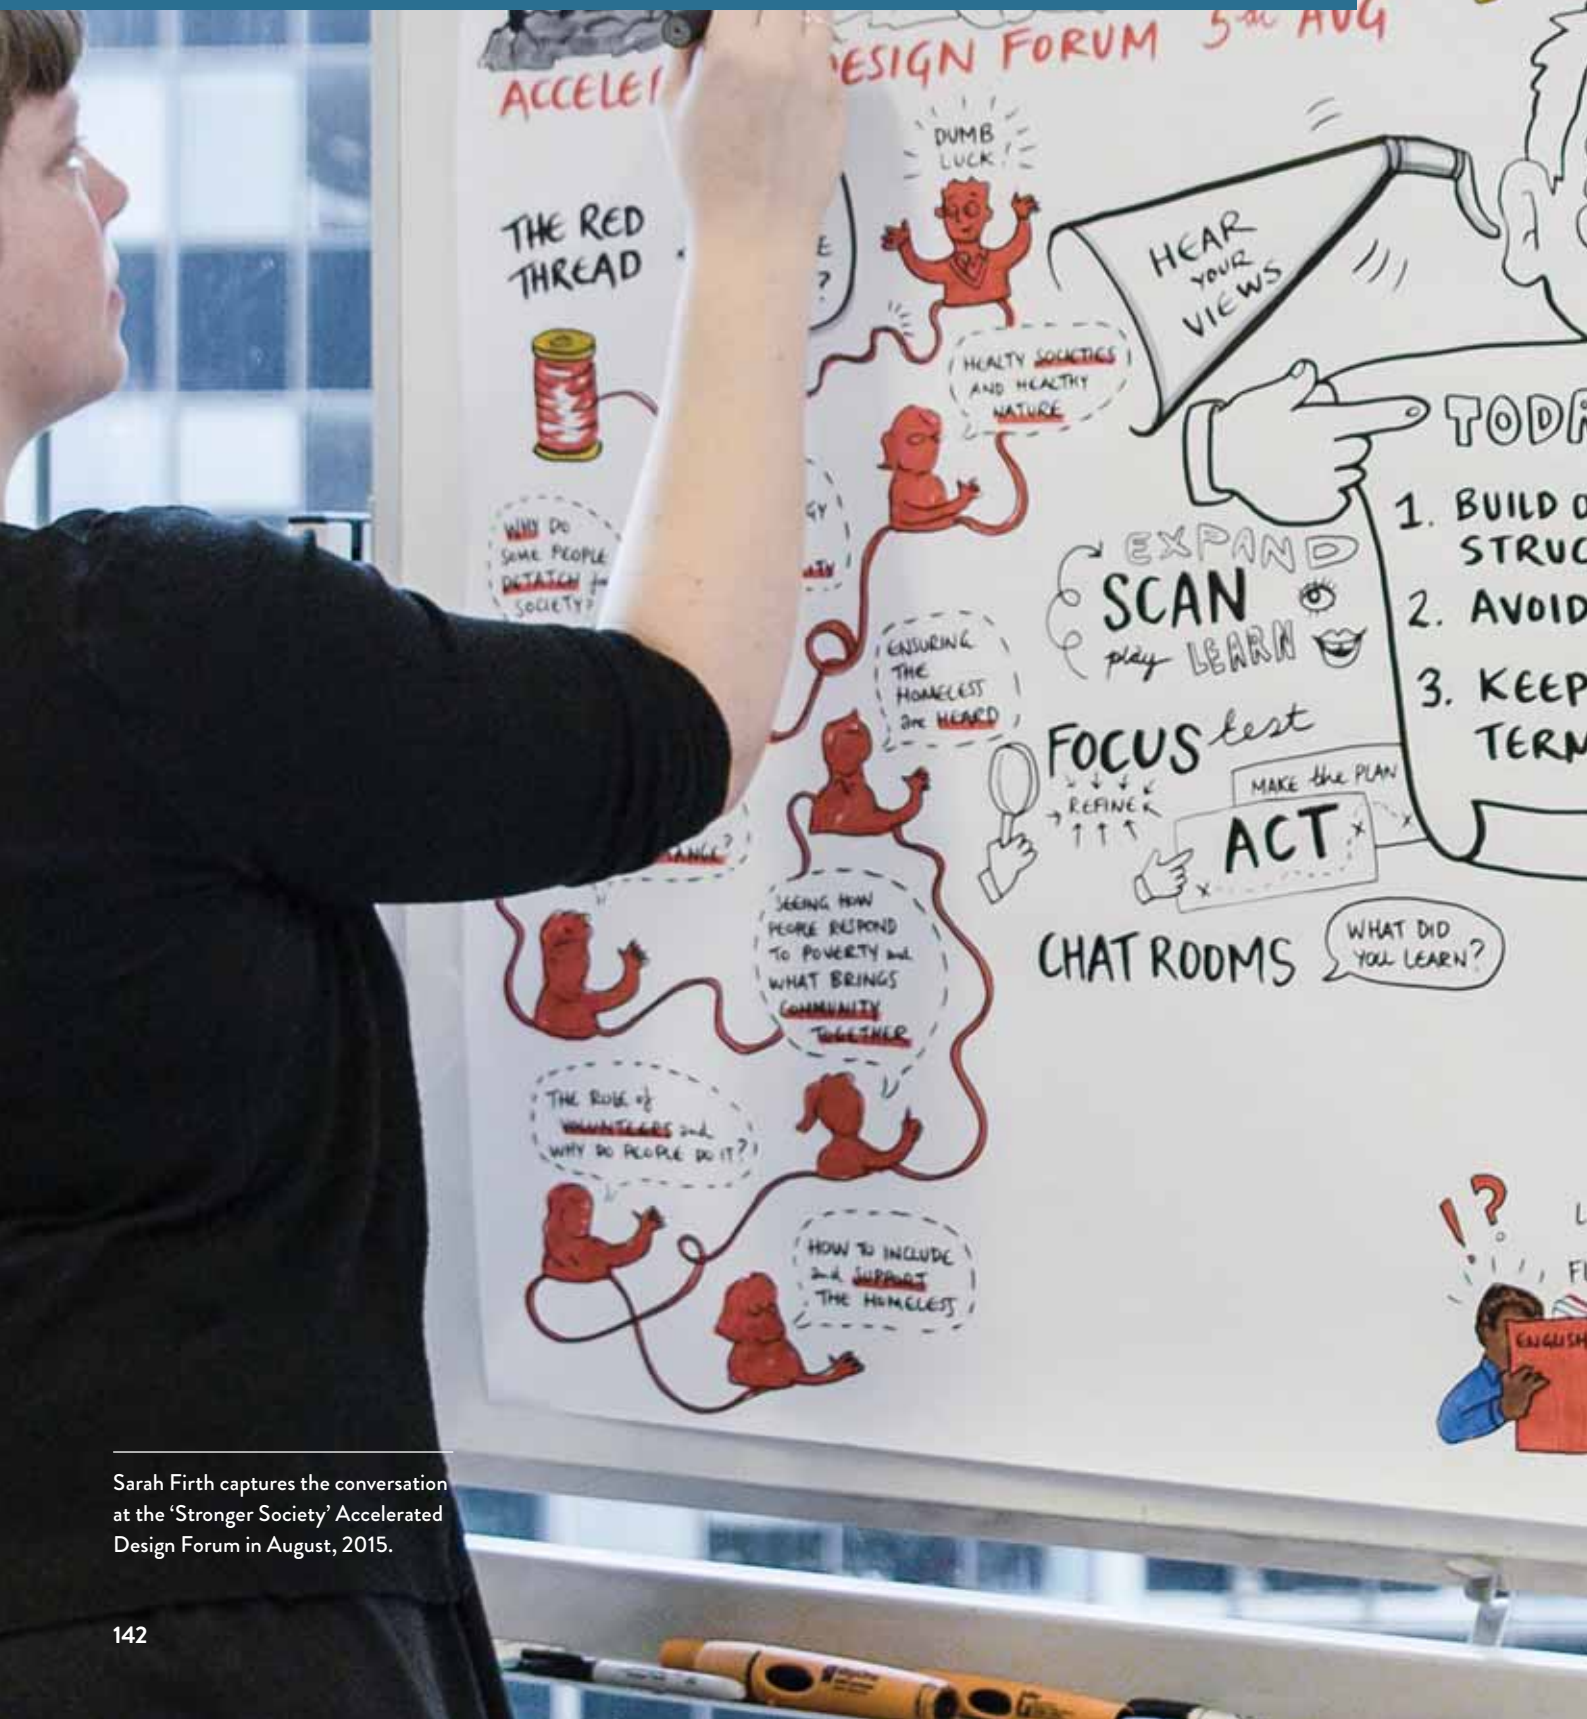 ACCELE
ESIGN FORUM 5 AUG
DUMB
LUCK!
THE RED
THREAD
E
?
HEAR
YOUR
VIEWS
HEALTY SOCIETIES
AND HEALTHY
NATURE
WHY DO
SOME PEOPLE
DETATCH
SOCIETY?
GY
ENSURING
THE
HOMELESS
are HEARD
ANGE?
SEEING HOW
PEOPLE RESPOND
TO POVERTY and
WHAT BRINGS
COMMUNITY
TOGETHER
THE ROLE of
VOLUNTEERS and
WHY DO PEOPLE DO IT?
HOW TO INCLUDE
and SUPPORT
THE HOMELESS
EXPAND
SCAN
play LEARN
FOCUS test
REFINE
MAKE the PLAN
ACT
CHAT ROOMS
WHAT DID
YOU LEARN?
TODA
1. BUILD O
STRUC
2. AVOID
3. KEEP
TERM
!?
L
FL
ENGLISH
Sarah Firth captures the conversation
at the ‘Stronger Society’ Accelerated
Design Forum in August, 2015.
142